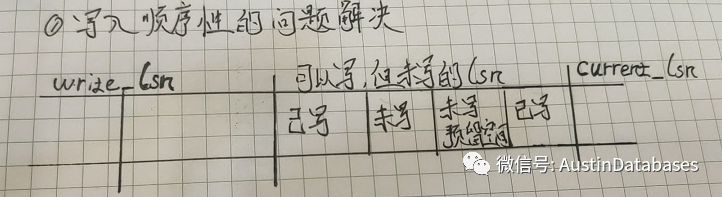 ① 写入顺序性的问题解决
write_lsn 可以写,但未写的lsn current_lsn
已写 未写 未写预留空间 已写
微信号: AustinDatabases